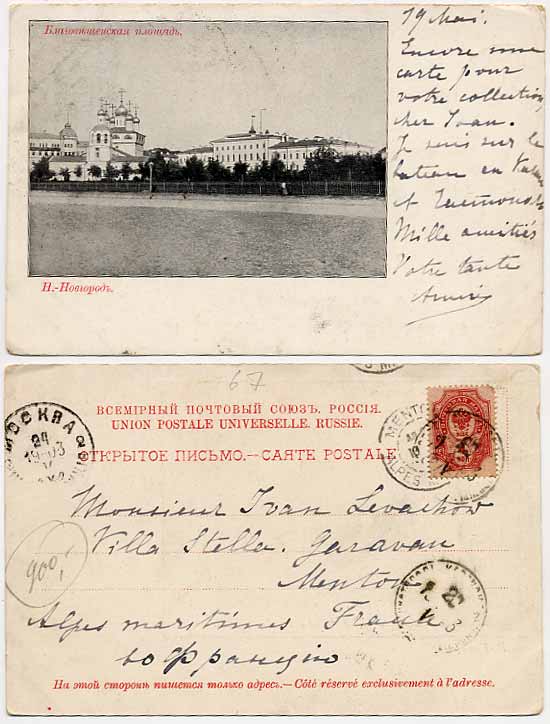 Благовѣщенская площадь.
19 Mai.
Encore une
carte pour
votre collection,
cher Ivan.
Je suis sur le
bateau en
et
Mille amitiés
Votre tante
Н.-Новгородъ.
67
ВСЕМІРНЫЙ ПОЧТОВЫЙ СОЮЗЪ. РОССІЯ.
UNION POSTALE UNIVERSELLE. RUSSIE.
ОТКРЫТОЕ ПИСЬМО.—CARTE POSTALE
МОСКВА
24
1903
MENTO
ALPES
Monsieur Ivan Levachow
Villa Stella. Garavan
Menton
Alpes maritimes France
во Францію
900,
На этой сторонѣ пишется только адресъ.—Côté réservé exclusivement à l'adresse.